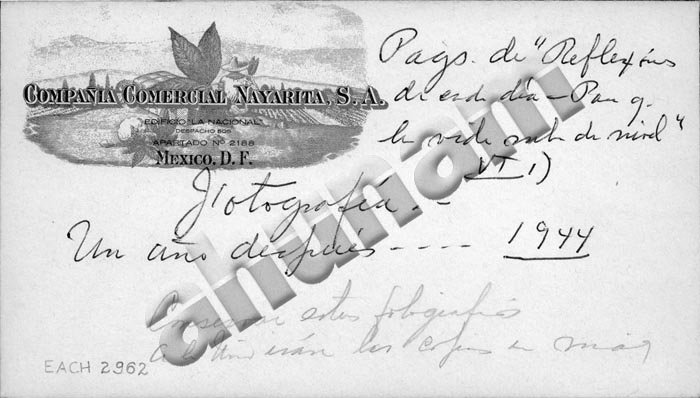 COMPAÑIA COMERCIAL NAYARITA, S. A.
EDIFICIO "LA NACIONAL"
DESPACHO 805
APARTADO Nº 2188
MEXICO, D. F.
Pags. de "Reflexiones
de cada día - Para q.
la vida suba de nivel"
VI 1)
Fotografía. -
Un año después - - - - 1944
Conservar estas fotografías
EACH 2962
ahunam